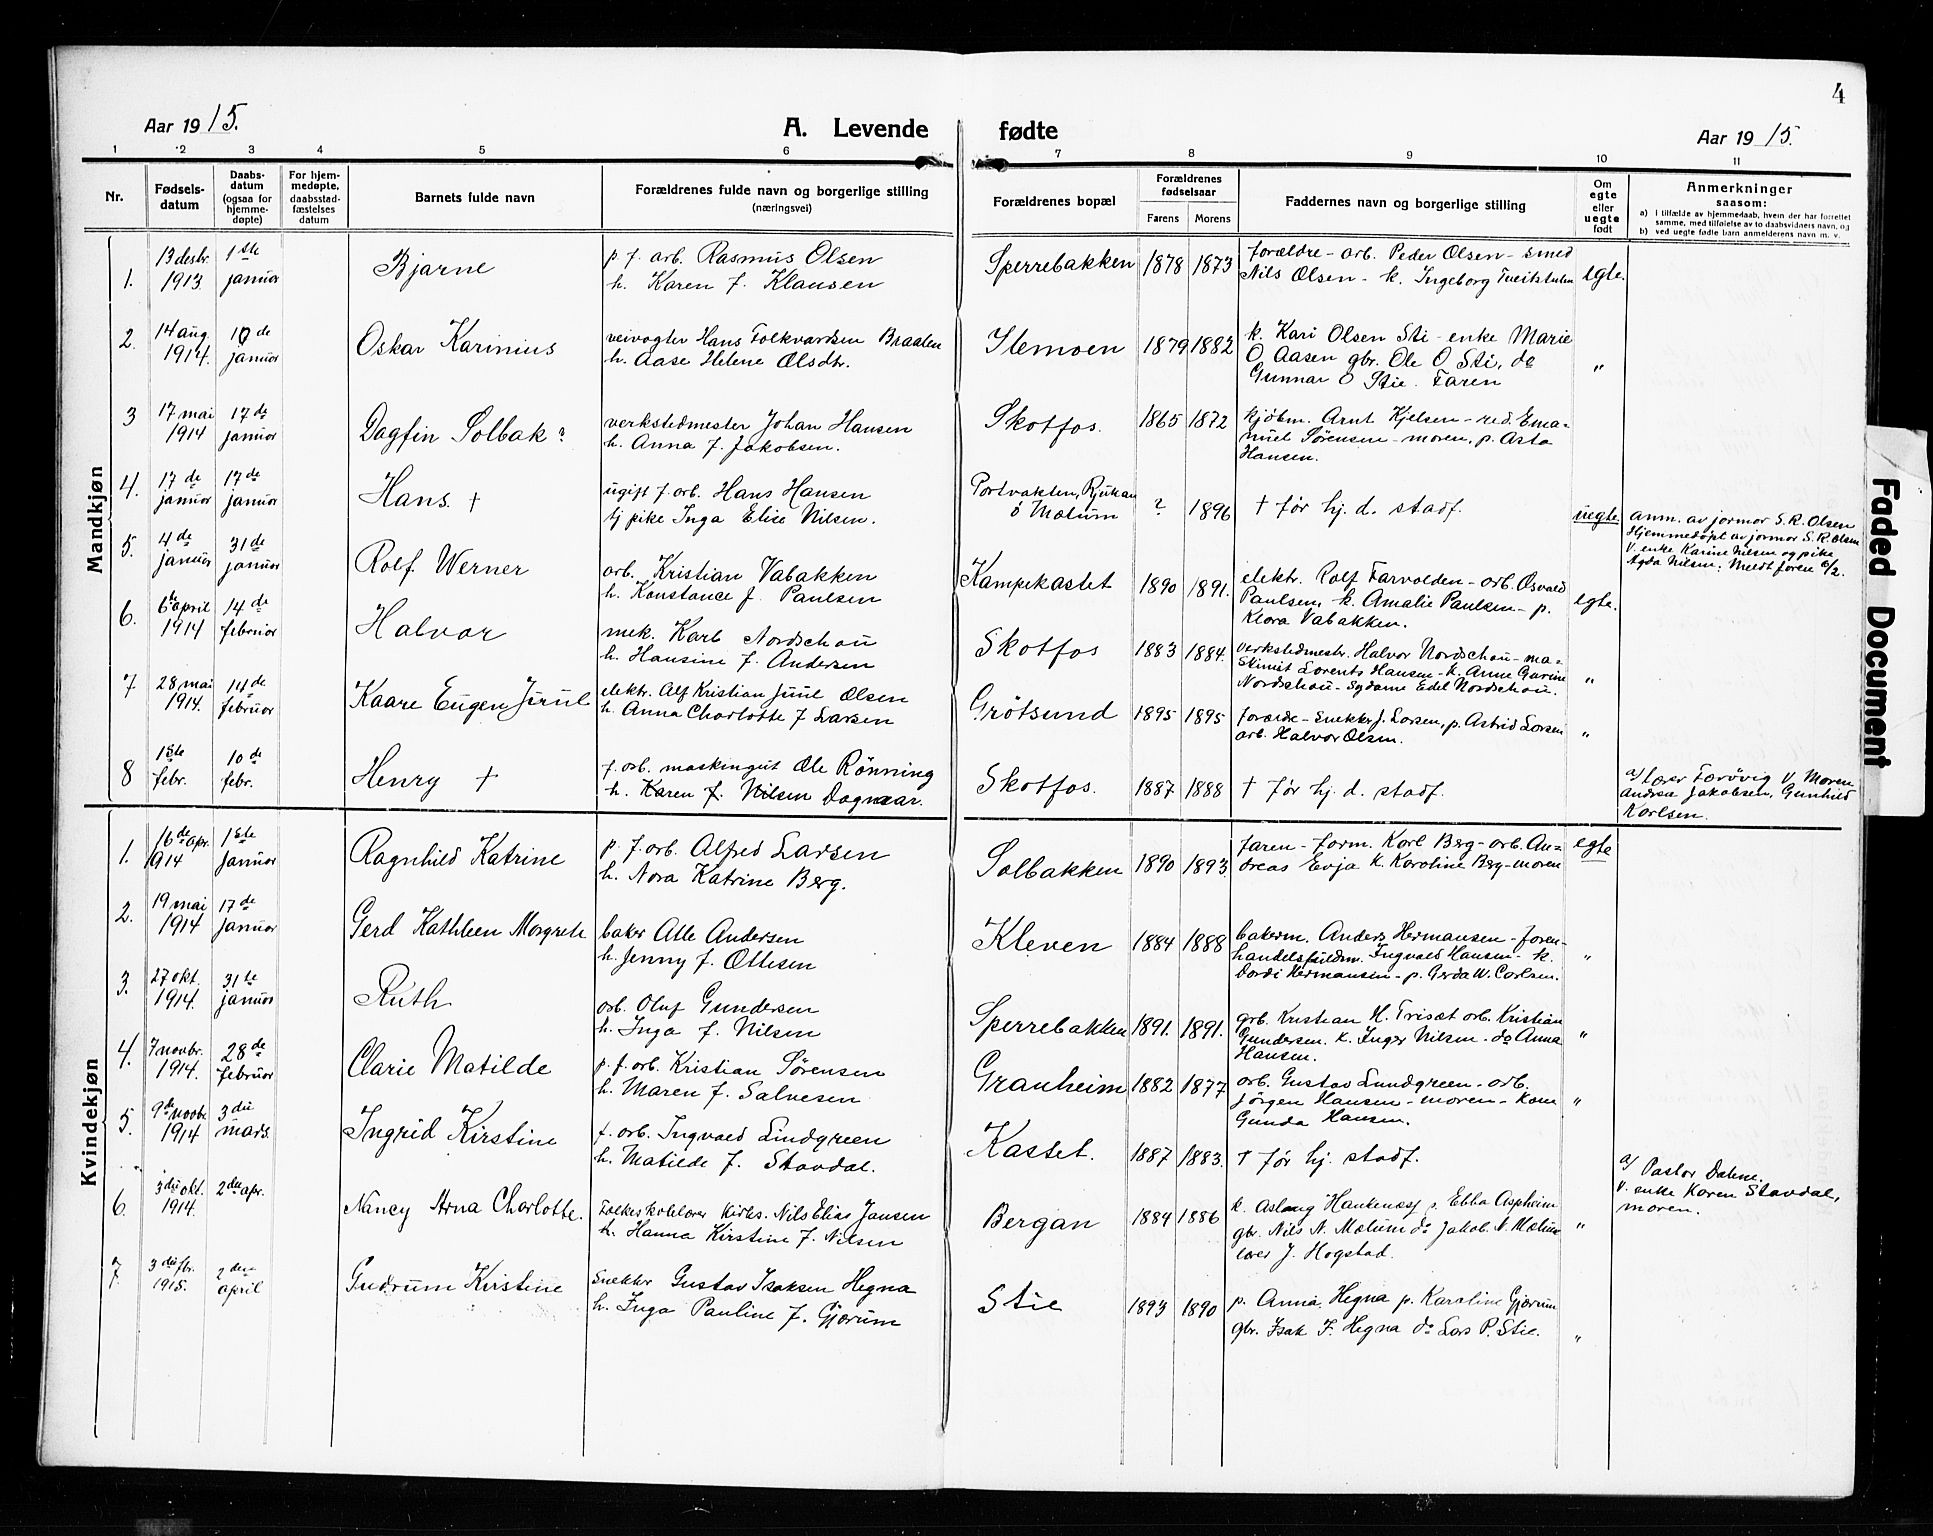 4
Aar 1915.
A. Levende fødte
Aar 1915.
1 2 3 4 5 6 7 8 9 10 11
Nr.
Fødsels-
datum
Daabs-
datum
(ogsaa for
hjemme-
døpte)
For hjem-
medøpte,
daabsstad-
fæstelses
datum
Barnets fulde navn
Forældrenes fulde navn og borgerlige stilling
(næringsvei)
Forældrenes bopæl
Forældrenes
fødselsaar
Farens Morens
Faddernes navn og borgerlige stilling
Om
egte
eller
uegte
født
Anmerkninger
saasom:
a) I tilfælde av hjemmedaab, hvem der har forrettet
samme, med tilføielse av to daabsvidners navn, og
b) ved uegte fødte barn anmelderens navn m. v.
Mandkjøn
1.
13 desbr.
1913
1ste
januar
Bjarne
p. f. arb. Rasmus Olsen
h. Karen f. Klausen
Sperrebakken
1878 1873
forældre - arb. Peder Olsen - smed
Nils Olsen - k. Ingeborg Tveitstulen
egte.
2.
14 aug.
1914.
10 de
januar
Oskar Karinius
veivogter Hans Folkvardsen Braaten
h. Aase Helene Olsdtr.
Stemoen
1879 1882
k. Kari Olsen Sti - enke Marie
O Aasen gbr. Ole O Sti, do
Gunnar O Stie. Faren
"
3
17 mai
1914
17 de
januar
Dagfin Solbak ?
verkstedmester Johan Hansen
h. Anna f. Jakobsen.
Skotfos.
1865 1872
kjøbm. Arnt Kjelsen - red. Ema-
nuel Sørensen - moren, p. Asta
Hansen.
4.
17 de
januar
17 de
januar
Hans. +
ugift f. arb. Hans Hansen
tj pike Inga Elise Nilsen.
Portvakten, Rjukan
ö Mælum
? 1896
† før hj. d. stadf.
uegte.
anm. av jormor S. R. Olsen
Hjemmedøpt av jormor S. R. Olsen
V. enke Karine Nilsen og pike
Agda Nilsen. Meldt foren 6/2.
5.
4 de
januar
31 de
januar
Rolf Werner
arb. Kristian Vabakken
h. Konstance f. Paulsen
Kampekastet
1890 1891.
elektr. Rolf Farvolden - arb. Osvald
Paulsen, k. Amalie Paulsen - p.
Klara Vabakken.
egte.
6.
6te april
1914
14 de
februar
Halvor
mek. Karl Nordschau
h. Hansine f. Andersen
Skotfos
1883 1884.
verkstedmestr. Halvor Nordschau - ma-
skinist Lorents Hansen - k. Anne Gurine
Nordschau - sydame Edel Nordschau.
"
7
28 mai
1914.
14 de
februar
Kaare Eugen Juul
elektr. Alf Kristian Juul Olsen
h. Anna Charlotte f Larsen
Grötsund
1895 1895
forældre - Snekker J. Larsen, p. Astrid Larsen
arb. Halvor Olsen.
"
8
1ste
febr.
10 de
febr.
Henry +
f. arb. maskingut Ole Rönning
h. Karen f. Nilsen Dagmar.
Skotfos.
1887 1888
† før hj. d. stadf.
a/ Lærer Farövig V. Moren
Andrea Jakobsen, Gunhild
Karlsen.
Kvindekjøn
1.
16 de apr.
914
1ste
januar
Ragnhild Katrine
p. f. arb. Alfred Larsen
h. Nora Katrine Berg.
Solbakken
1890 1893
faren - form. Karl Berg - arb. An-
dreas Evja k. Karoline Berg - moren
egte
2.
19 mai
1914
17 de
januar
Gerd Kathleen Margrete
baker Alle Andersen
h. Jenny f. Ottesen
Kleven
1884 1888
bakerm. Anders Hermansen - foren-
handelsfuldm. Ingvald Hansen - k.
Dordi Hermansen - p. Gerda W. Carlsen.
"
3.
27 okt.
1914.
31te
januar
Ruth
arb. Oluf Gundersen
h. Inga f. Nilsen
Sperrebakken
1891. 1891.
grb. Kristian H. Trisæt arb. Kristian
Gundersen. k. Inger Nilsen. do Anna
Hansen.
"
4.
7 novbr.
1914.
28 de
februar
Clarie Matilde
p. f. arb. Kristian Sørensen
h. Maren f. Salvesen
Granheim
1882 1877
arb. Gustav Lundgreen - arb.
Jørgen Hansen - moren - kone
Gunda Hansen.
"
5.
9 de novbr
1914
3 die
mars
Ingrid Kirstine
f. arb. Ingvald Lindgreen
h. Matilde f. Stavdal.
Kastet.
1887 1883.
† før hj. stadf.
a/ Pastor Dalene.
V. enke Karen Stavdal,
moren.
6.
3 die okt.
1914.
2 den apr.
Nancy Arna Charlotte.
Folkeskolelærer kirks. Nils Elias Jansen
h. Hanna Kirstine f. Nilsen
Bergan
1884 1886
k. Aslaug Hankenæs p. Ebba Aspheim
gbr. Nils N. Mælum do Jakob N. Mælum
lærer J. Hogstad.
"
7.
3 die fbr.
1915.
2 den
april
Gudrum Kirstine
Snekker Gustav Isaksen Hegna
h. Inga Pauline f. Gjærum
Stie
1893 1890
p. Anna Hegna p. Karoline Gjærum
gbr. Isak F. Hegna do Lars P. Stie.
"
Faded Document